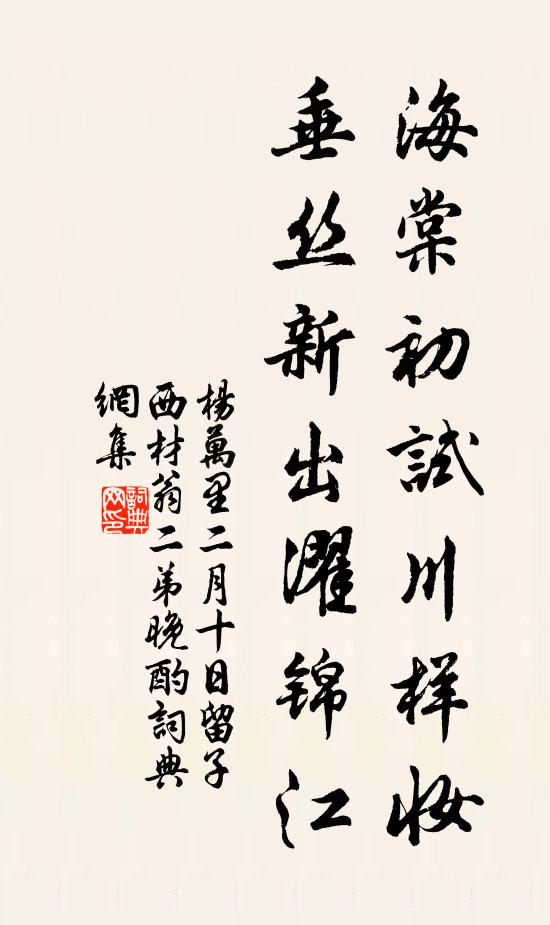 海棠初試川样妆
垂丝新出濯锦江
楊萬里二月十日留子
西材翁二弟晚酌詞典
網集
詞典
网印